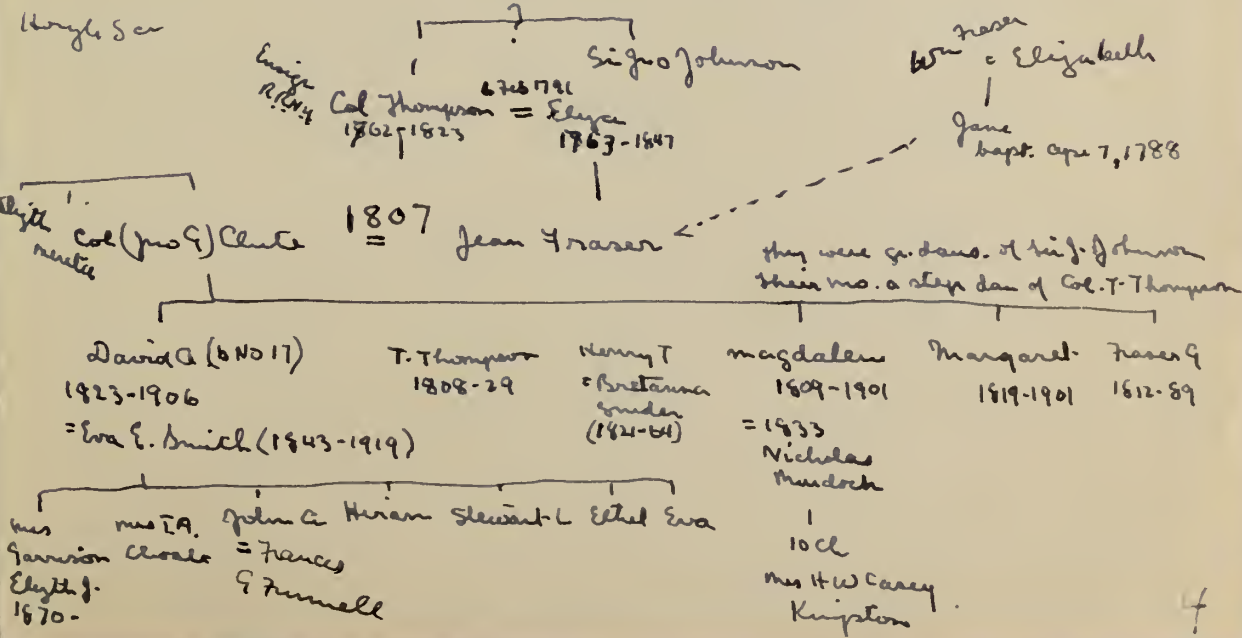 ?
Sir Jno Johnson
Wm Fraser = Elizabeth
Ensign
Col Thompson = Eliza
6 Feb 1791
1762-1823
1763-1847
Jane
bapt. Apr 7, 1788
Col (Jno G) Clute
1807
=
Jean Fraser
they were gr. daus. of Sir J. Johnson
Their mo. a step dau of Col. T. Thompson
David G (b NO 17)
1823-1906
= Eva E. Smith (1843-1919)
T. Thompson
1808-29
Henry T
= Bretanna
Snider
(1821-64)
Magdalene
1809-1901
= 1833
Nicholas
Murdoch
10 Ch
Mrs H W Carey
Kingston
Margaret
1819-1901
Fraser G
1812-89
Mrs
Garrison
Elizth J.
1870-
Mrs I.A.
Choate
John G
= Frances
G Funnell
Hiram
Stewart L
Ethel
Eva
4